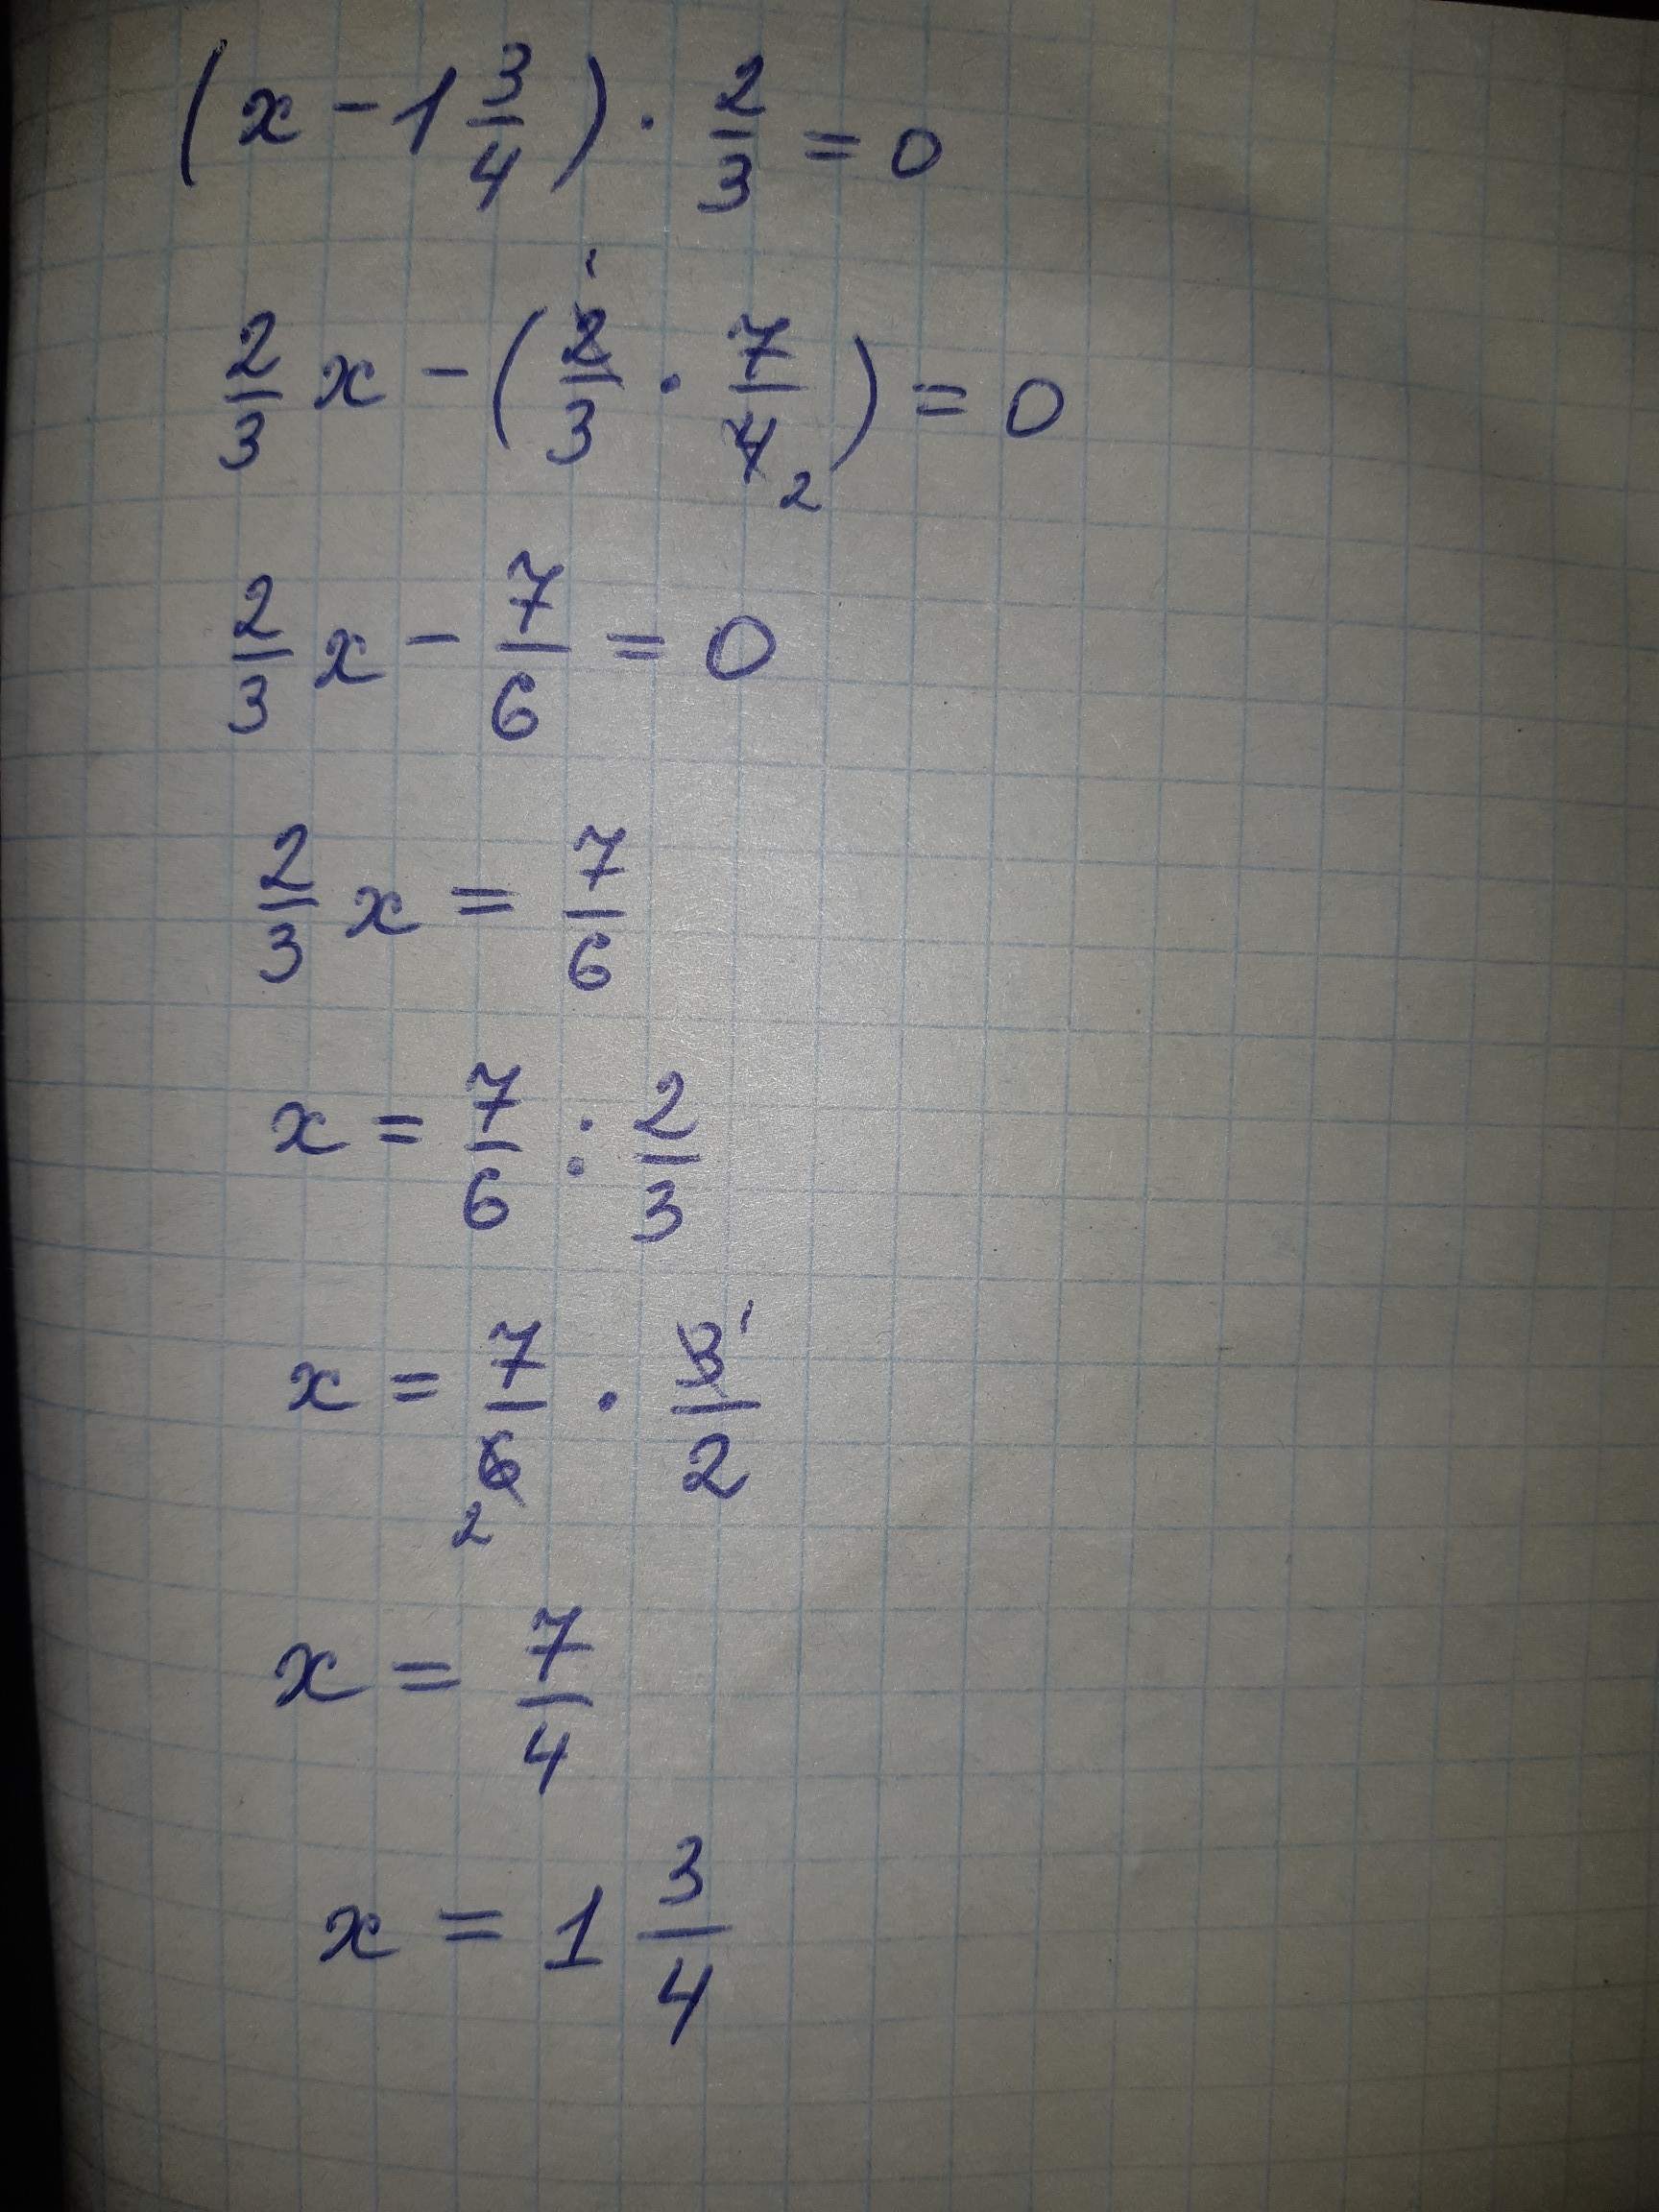 (x - 1 3/4) · 2/3 = 0
2/3 x - (2/3 · 7/4) = 0 1 2
2/3 x - 7/6 = 0
2/3 x = 7/6
x = 7/6 : 2/3
x = 7/6 · 3/2 1 2
x = 7/4
x = 1 3/4